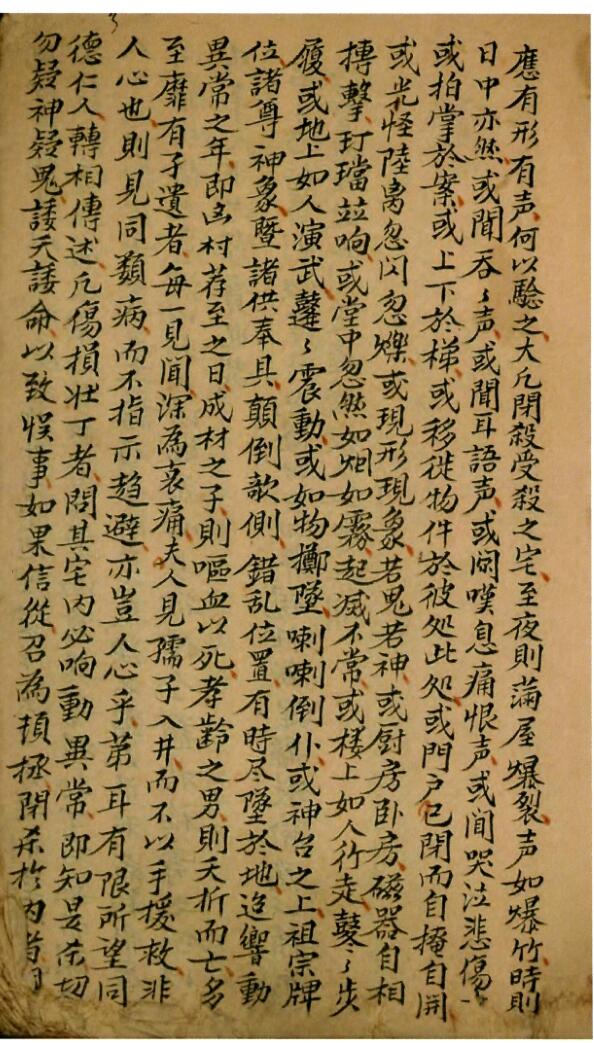 應有形有声何以驗之大凡閉殺受殺之宅至夜則滿屋爆裂声如爆竹時則
日中亦然或聞吞々声或聞耳語声或闻嘆息痛恨声或闻哭泣悲傷
或拍掌於案或上下於梯或移徙物件於彼処此処或門户已閉而自掩自開
或光怪陸离忽闪忽爍或現形現象若鬼若神或厨房卧房磁器自相
摶擊玎璫並响或堂中忽然如烟如霧起滅不常或楼上如人行走鼕々步
履或地上如人演武蘧々震動或如物擲墜喇喇倒仆或神台之上祖宗牌
位諸尊神象暨諸供奉具顛倒欹側錯乱位置有時尽墜於地迨響動
異常之年即凶村荐至之日成材之子則嘔血以死孝齡之男則夭折而亡多
至靡有孑遺者每一見聞深為哀痛夫人見孺子入井而不以手援救非
人心也則見同類病而不指示趋避亦豈人心乎苐耳有限所望同
德仁人轉相傳述凡傷損壮丁者問其宅内必响動異常即知是杀切
勿疑神疑鬼諉天諉命以致悮事如果信從召為預拯閉杀於内者